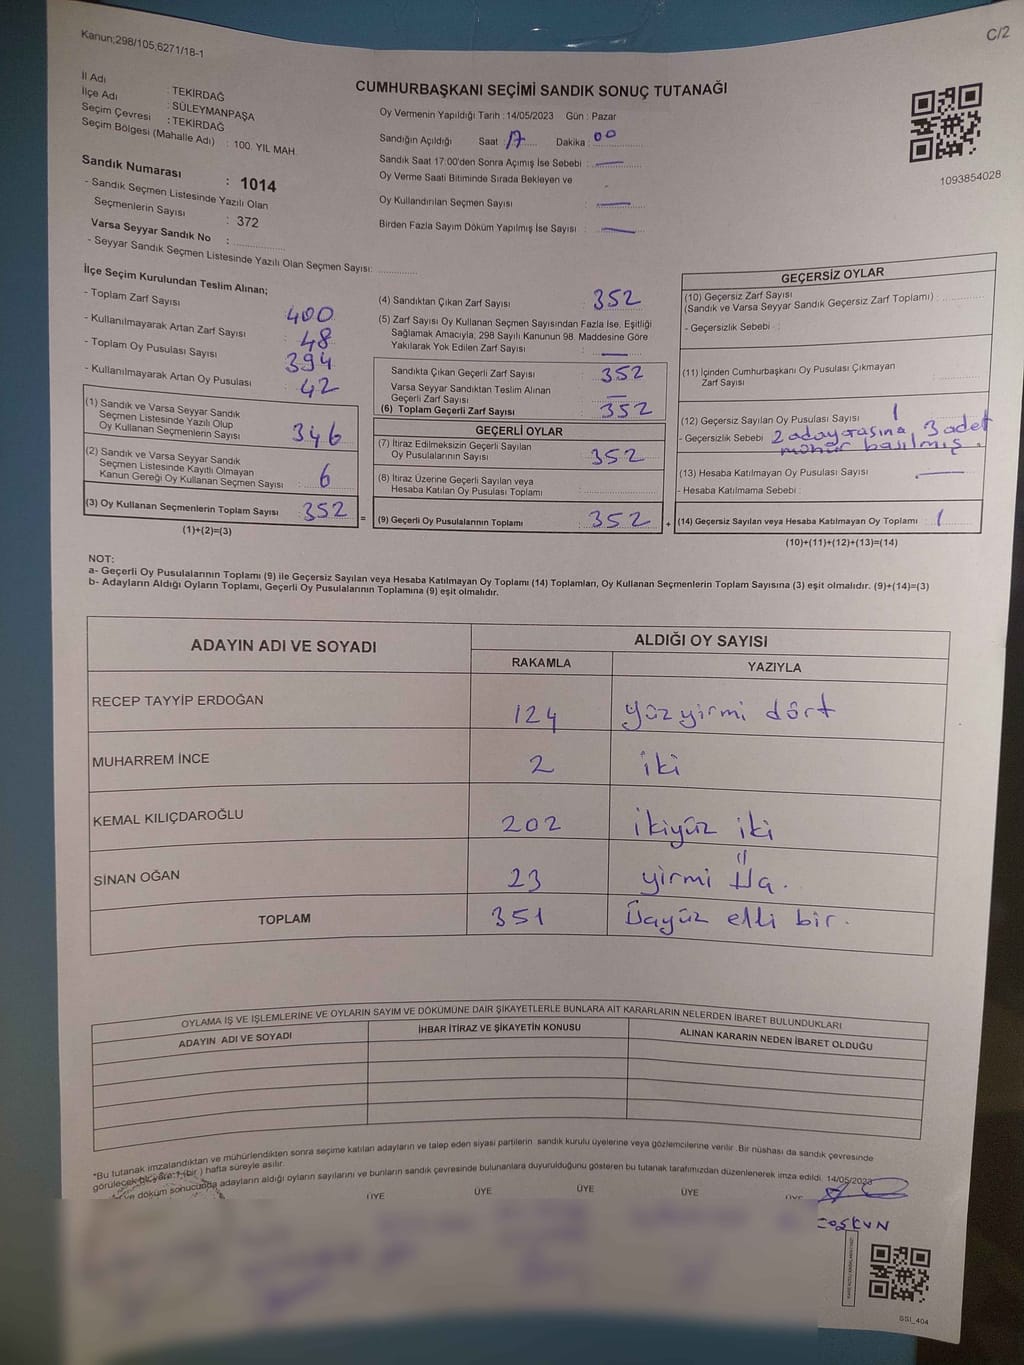 Kanun;298/105,6271/18-1
C/2
CUMHURBAŞKANI SEÇİMİ SANDIK SONUÇ TUTANAĞI
İl Adı : TEKİRDAĞ
İlçe Adı : SÜLEYMANPAŞA
Seçim Çevresi : TEKİRDAĞ
Seçim Bölgesi (Mahalle Adı) : 100. YIL MAH.
Sandık Numarası : 1014
- Sandık Seçmen Listesinde Yazılı Olan
Seçmenlerin Sayısı : 372
Varsa Seyyar Sandık No :
- Seyyar Sandık Seçmen Listesinde Yazılı Olan Seçmen Sayısı:
Oy Vermenin Yapıldığı Tarih : 14/05/2023 Gün : Pazar
Sandığın Açıldığı Saat 17 Dakika : 00
Sandık Saat 17:00'den Sonra Açımış İse Sebebi : —
Oy Verme Saati Bitiminde Sırada Bekleyen ve
Oy Kullandırılan Seçmen Sayısı : —
Birden Fazla Sayım Döküm Yapılmış İse Sayısı : —
1093854028
İlçe Seçim Kurulundan Teslim Alınan;
- Toplam Zarf Sayısı 400
- Kullanılmayarak Artan Zarf Sayısı 48
- Toplam Oy Pusulası Sayısı 394
- Kullanılmayarak Artan Oy Pusulası 42
(1) Sandık ve Varsa Seyyar Sandık
Seçmen Listesinde Yazılı Olup
Oy Kullanan Seçmenlerin Sayısı : 346
(2) Sandık ve Varsa Seyyar Sandık
Seçmen Listesinde Kayıtlı Olmayan
Kanun Gereği Oy Kullanan Seçmen Sayısı : 6
(3) Oy Kullanan Seçmenlerin Toplam Sayısı : 352
(1)+(2)=(3)
(4) Sandıktan Çıkan Zarf Sayısı : 352
(5) Zarf Sayısı Oy Kullanan Seçmen Sayısından Fazla İse, Eşitliği
Sağlamak Amacıyla, 298 Sayılı Kanunun 98. Maddesine Göre
Yakılarak Yok Edilen Zarf Sayısı : —
Sandıkta Çıkan Geçerli Zarf Sayısı : 352
Varsa Seyyar Sandıktan Teslim Alınan
Geçerli Zarf Sayısı : —
(6) Toplam Geçerli Zarf Sayısı : 352
GEÇERLİ OYLAR
(7) İtiraz Edilmeksizin Geçerli Sayılan
Oy Pusulalarının Sayısı : 352
(8) İtiraz Üzerine Geçerli Sayılan veya
Hesaba Katılan Oy Pusulası Toplamı :
= (9) Geçerli Oy Pusulalarının Toplamı : 352 +
GEÇERSİZ OYLAR
(10) Geçersiz Zarf Sayısı
(Sandık ve Varsa Seyyar Sandık Geçersiz Zarf Toplamı) :
- Geçersizlik Sebebi :
(11) İçinden Cumhurbaşkanı Oy Pusulası Çıkmayan
Zarf Sayısı :
(12) Geçersiz Sayılan Oy Pusulası Sayısı : 1
- Geçersizlik Sebebi 2 aday arasına, 3 adet
mühür basılmış.
(13) Hesaba Katılmayan Oy Pusulası Sayısı : —
- Hesaba Katılmama Sebebi :
(14) Geçersiz Sayılan veya Hesaba Katılmayan Oy Toplamı : 1
(10)+(11)+(12)+(13)=(14)
NOT:
a- Geçerli Oy Pusulalarının Toplamı (9) ile Geçersiz Sayılan veya Hesaba Katılmayan Oy Toplamı (14) Toplamları, Oy Kullanan Seçmenlerin Toplam Sayısına (3) eşit olmalıdır. (9)+(14)=(3)
b- Adayların Aldığı Oyların Toplamı, Geçerli Oy Pusulalarının Toplamına (9) eşit olmalıdır.
ADAYIN ADI VE SOYADI
ALDIĞI OY SAYISI
RAKAMLA YAZIYLA
RECEP TAYYİP ERDOĞAN 124 yüz yirmi dört
MUHARREM İNCE 2 iki
KEMAL KILIÇDAROĞLU 202 ikiyüz iki
SİNAN OĞAN 23 yirmi üç.
TOPLAM 351 Üçyüz elli bir.
OYLAMA İŞ VE İŞLEMLERİNE VE OYLARIN SAYIM VE DÖKÜMÜNE DAİR ŞİKAYETLERLE BUNLARA AİT KARARLARIN NELERDEN İBARET BULUNDUKLARI
ADAYIN ADI VE SOYADI İHBAR İTİRAZ VE ŞİKAYETİN KONUSU ALINAN KARARIN NEDEN İBARET OLDUĞU
*Bu tutanak imzalandıktan ve mühürlendikten sonra seçime katılan adayların ve talep eden siyasi partilerin sandık kurulu üyelerine veya gözlemcilerine verilir. Bir nüshası da sandık çevresinde
görülecek bir yere 1 (bir) hafta süreyle asılır.
ve döküm sonucunda adayların aldığı oyların sayılarını ve bunların sandık çevresinde bulunanlara duyurulduğunu gösteren bu tutanak tarafımızdan düzenlenerek imza edildi. 14/05/2023
ÜYE ÜYE ÜYE ÜYE ÜYE
COŞKUN
SSI_404